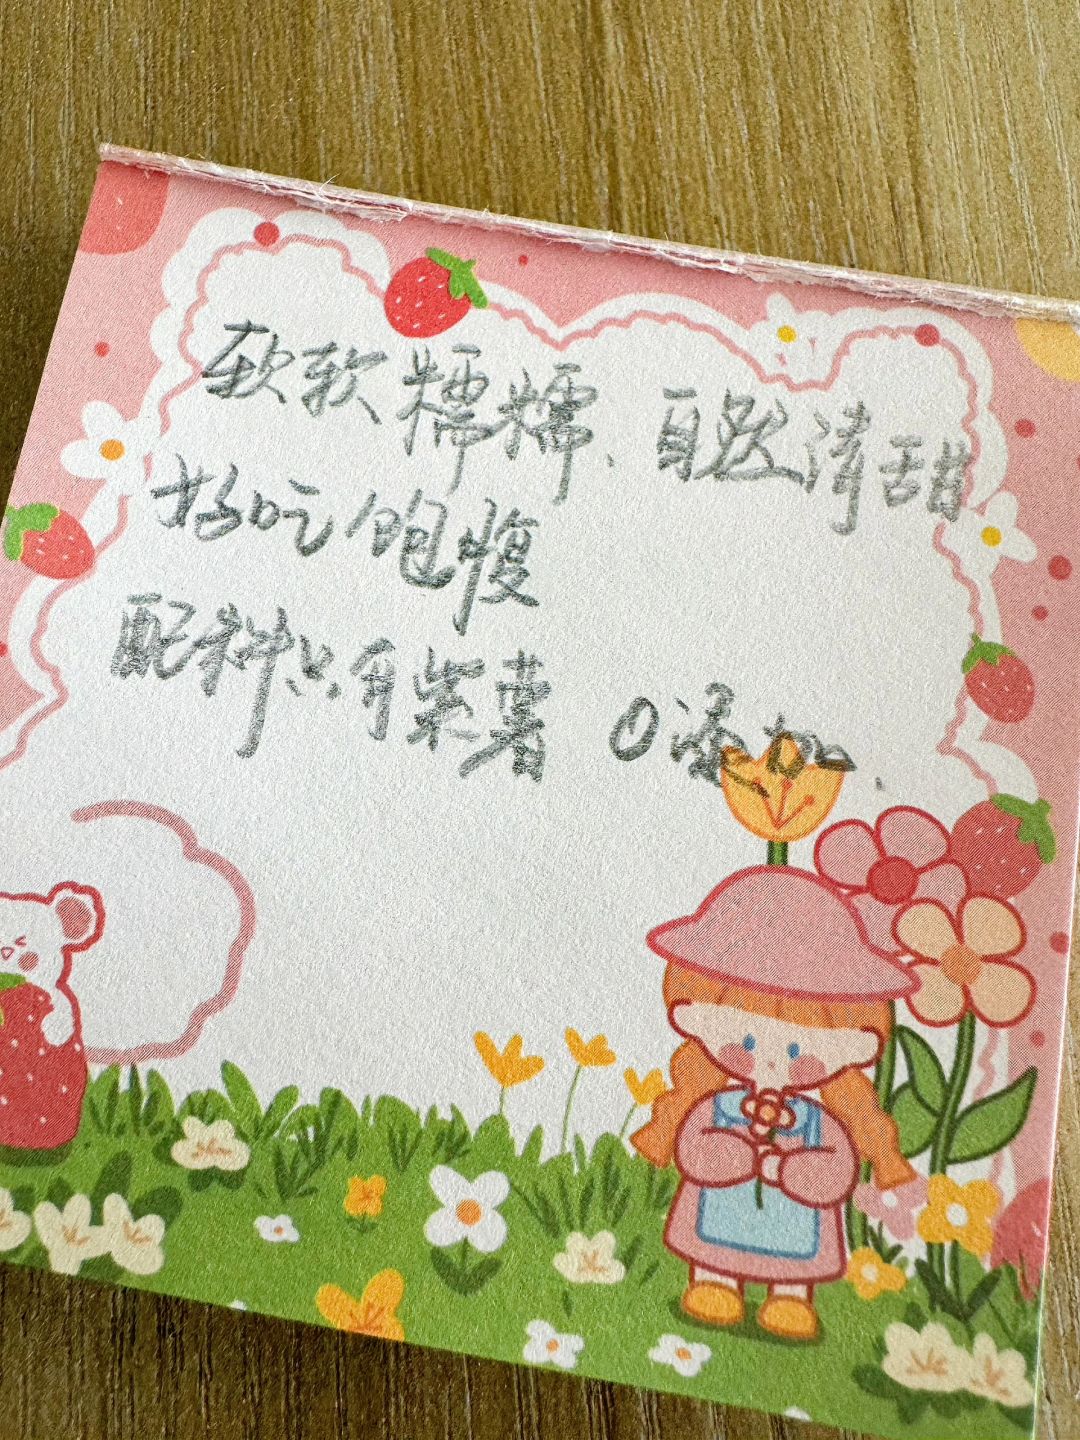 软软糯糯、自然清甜
好吃饱腹
配料只有紫薯 0添加.